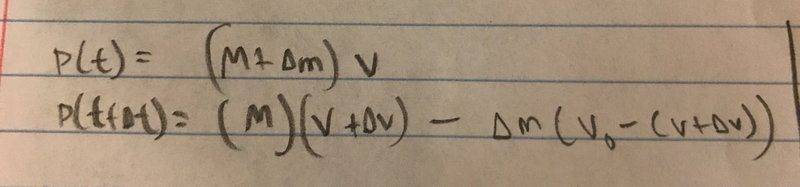 p(t) = (M + Δm) v
p(t+Δt) = (M)(v + Δv) - Δm (v₀ - (v+Δv))